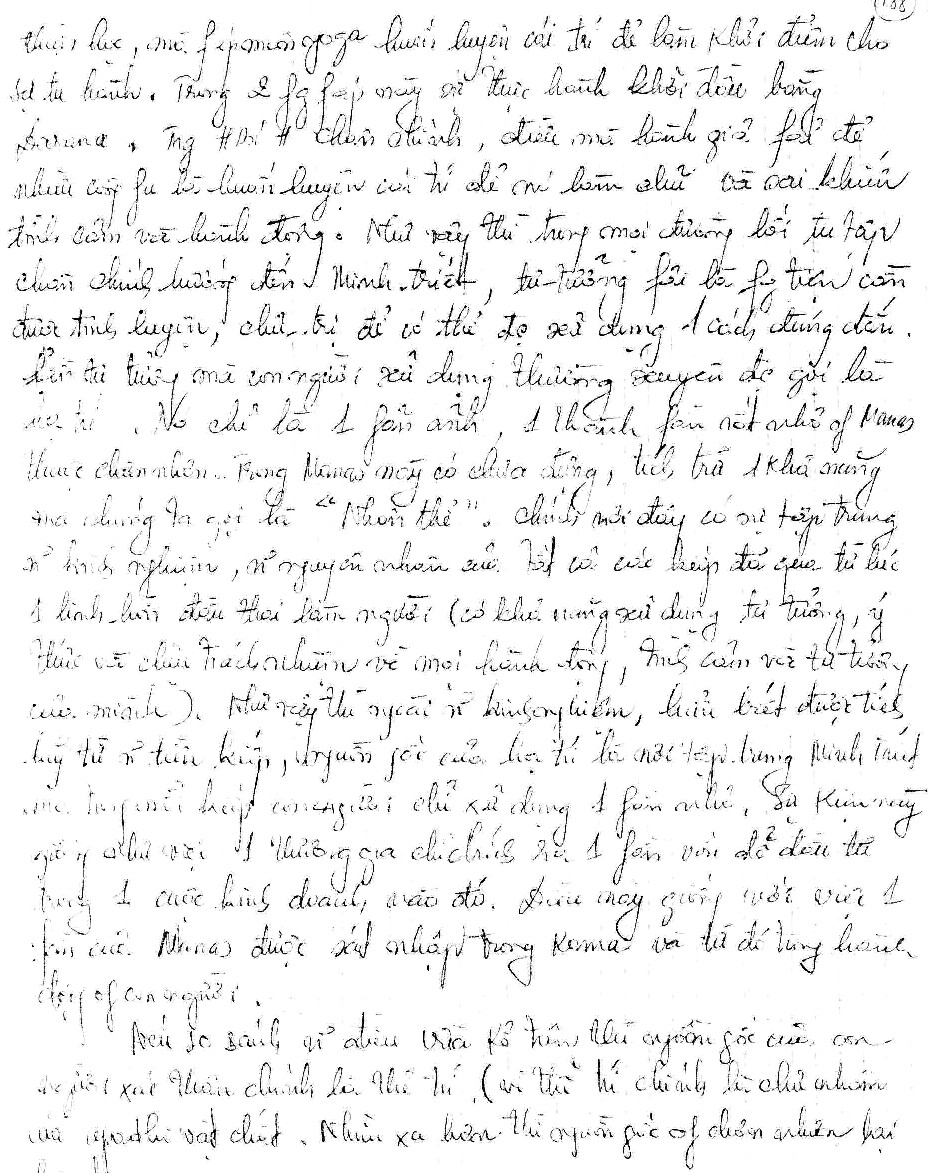 188
, mà fép mọn yoga huấn luyện cái trí để làm khởi điểm cho
sự tu hành. Trong 2 fg fáp này sự thực hành khởi đầu bằng
Darana. Trg chân chính, điều mà hành giả fải để
nhiều công fu là huấn luyện cái trí để nó làm chủ và sai khiến
tình cảm và hành động. Như vậy thì trong mọi đường lối tu tập
chân chính hướng đến Minh-triết, tư-tưởng fải là fg tiện cần
được tinh luyện, chủ-trị để có thể đc xử dụng 1 cách đúng đắn.
tư tưởng mà con người xử dụng thường xuyên đc gọi là
hạ trí. Nó chỉ là 1 fản ảnh, 1 thành fần rất nhỏ of Manas
thuộc chân nhân.. Trong Manas này có chứa đựng, tích trữ 1 khả năng
mà chúng ta gọi là " Nhơn thể ". Chính nơi đây có sự tập trung
kinh nghiệm, nguyên nhân của tất cả các kiếp đã qua từ lúc
1 linh-hồn đầu thai làm người (có khả năng xử dụng tư tưởng, ý
thức và chịu trách nhiệm về mọi hành động, tình cảm và tư tưởng
của mình). Như vậy thì ngoài kinh nghiệm, hiểu biết được tích
lũy từ tiền kiếp, nguồn gốc của hạ trí là nơi tập trung Minh Triết
mà trong mỗi kiếp con người chỉ xử dụng 1 fần nhỏ. Sự kiện này
giống như việc 1 thương gia chỉ trích ra 1 fần vốn để đầu tư
trong 1 cuộc kinh doanh nào đó. Điều này giống với việc 1
fần của Manas được sát nhập trong Kama và từ đó từng hành
động of con người.
Nếu so sánh điều vừa kể trên thì nguồn gốc của con
người xác thân chính là thể trí (vì thể trí chính là chủ nhân
vật chất. Nhìn xa hơn thì nguồn gốc of chân nhân lại